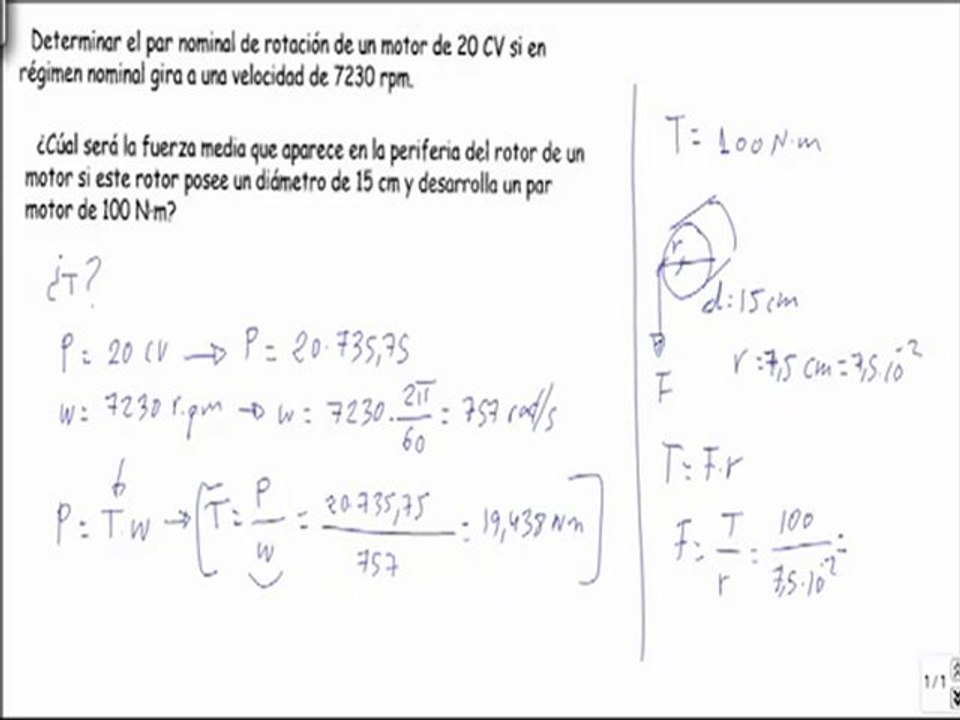 Determinar el par nominal de rotación de un motor de 20 CV si en
régimen nominal gira a una velocidad de 7230 rpm.
¿Cúal será la fuerza media que aparece en la periferia del rotor de un
motor si este rotor posee un diámetro de 15 cm y desarrolla un par
motor de 100 N·m?
¿T?
P = 20 CV → P = 20·735,75
w = 7230 r.pm → w = 7230 · 2π/60 = 757 rad/s
P = T·w → [T = P/w = 20·735,75/757 = 19,438 Nm]
T = 100 N·m
r
d = 15 cm
r = 7,5 cm = 7,5·10⁻²
F
T = F·r
F = T/r = 100/7,5·10⁻² =
1/1